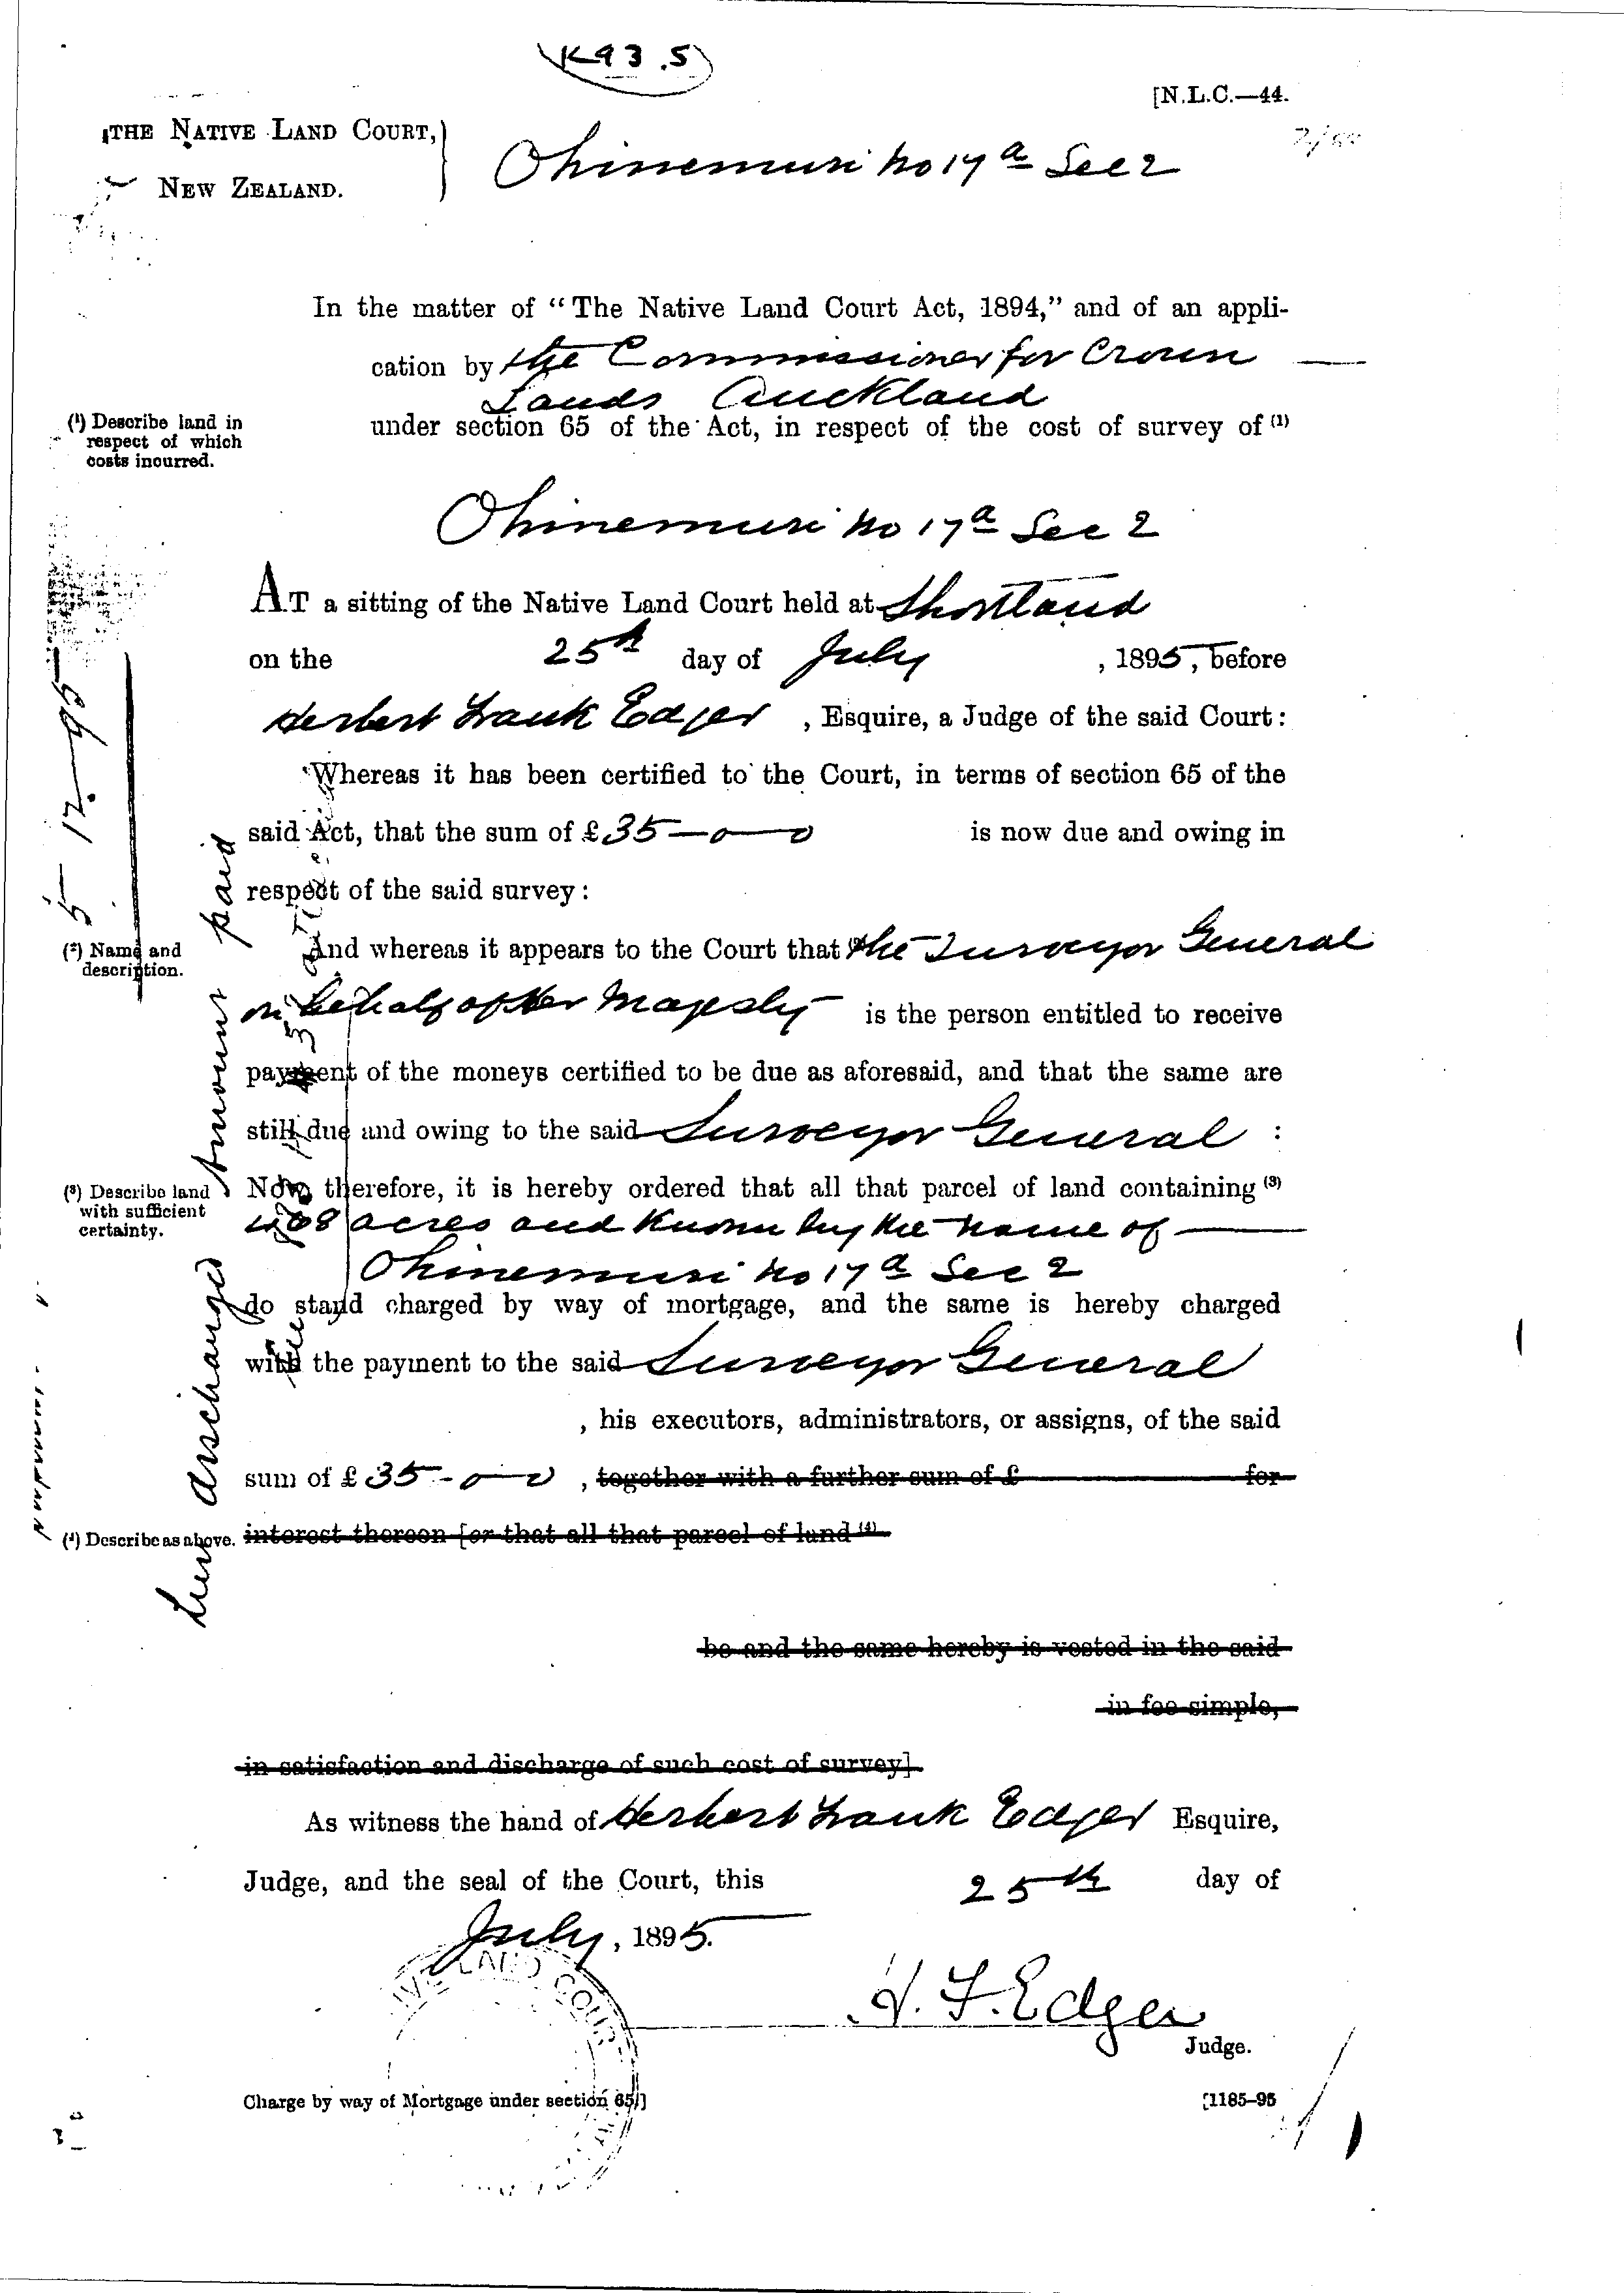 K93.5
[N.L.C.—44.
THE NATIVE LAND COURT,
NEW ZEALAND.
Ohinemuri No 17a Sec 2
In the matter of “The Native Land Court Act, 1894,” and of an appli-
cation by the Commissioner for Crown
Lands Auckland
(1) Describe land in
respect of which
costs incurred.
under section 65 of the Act, in respect of the cost of survey of (1)
Ohinemuri No 17a Sec 2
AT a sitting of the Native Land Court held at Shortland
on the 25th day of July , 1895, before
Herbert Frank Edger , Esquire, a Judge of the said Court:
Whereas it has been certified to the Court, in terms of section 65 of the
said Act, that the sum of £35-0-0 is now due and owing in
respect of the said survey:
(2) Name and
description.
And whereas it appears to the Court that the Surveyor General
on behalf of Her Majesty is the person entitled to receive
payment of the moneys certified to be due as aforesaid, and that the same are
still due and owing to the said Surveyor General :
(3) Describe land
with sufficient
certainty.
Now therefore, it is hereby ordered that all that parcel of land containing (3)
acres and known by the name of
Ohinemuri No 17a Sec 2
do stand charged by way of mortgage, and the same is hereby charged
with the payment to the said Surveyor General
, his executors, administrators, or assigns, of the said
sum of £35-0-0 , together with a further sum of £ for
(4) Describe as above.
interest thereon [or that all that parcel of land (4)
be and the same hereby is vested in the said
in fee simple,
in satisfaction and discharge of such cost of survey].
As witness the hand of Herbert Frank Edger Esquire,
Judge, and the seal of the Court, this 25th day of
July, 1895.
H. F. Edger
Judge.
Charge by way of Mortgage under section 65.]
[1185–95
Lien discharged Amount paid
5 12 95
LAND COUR